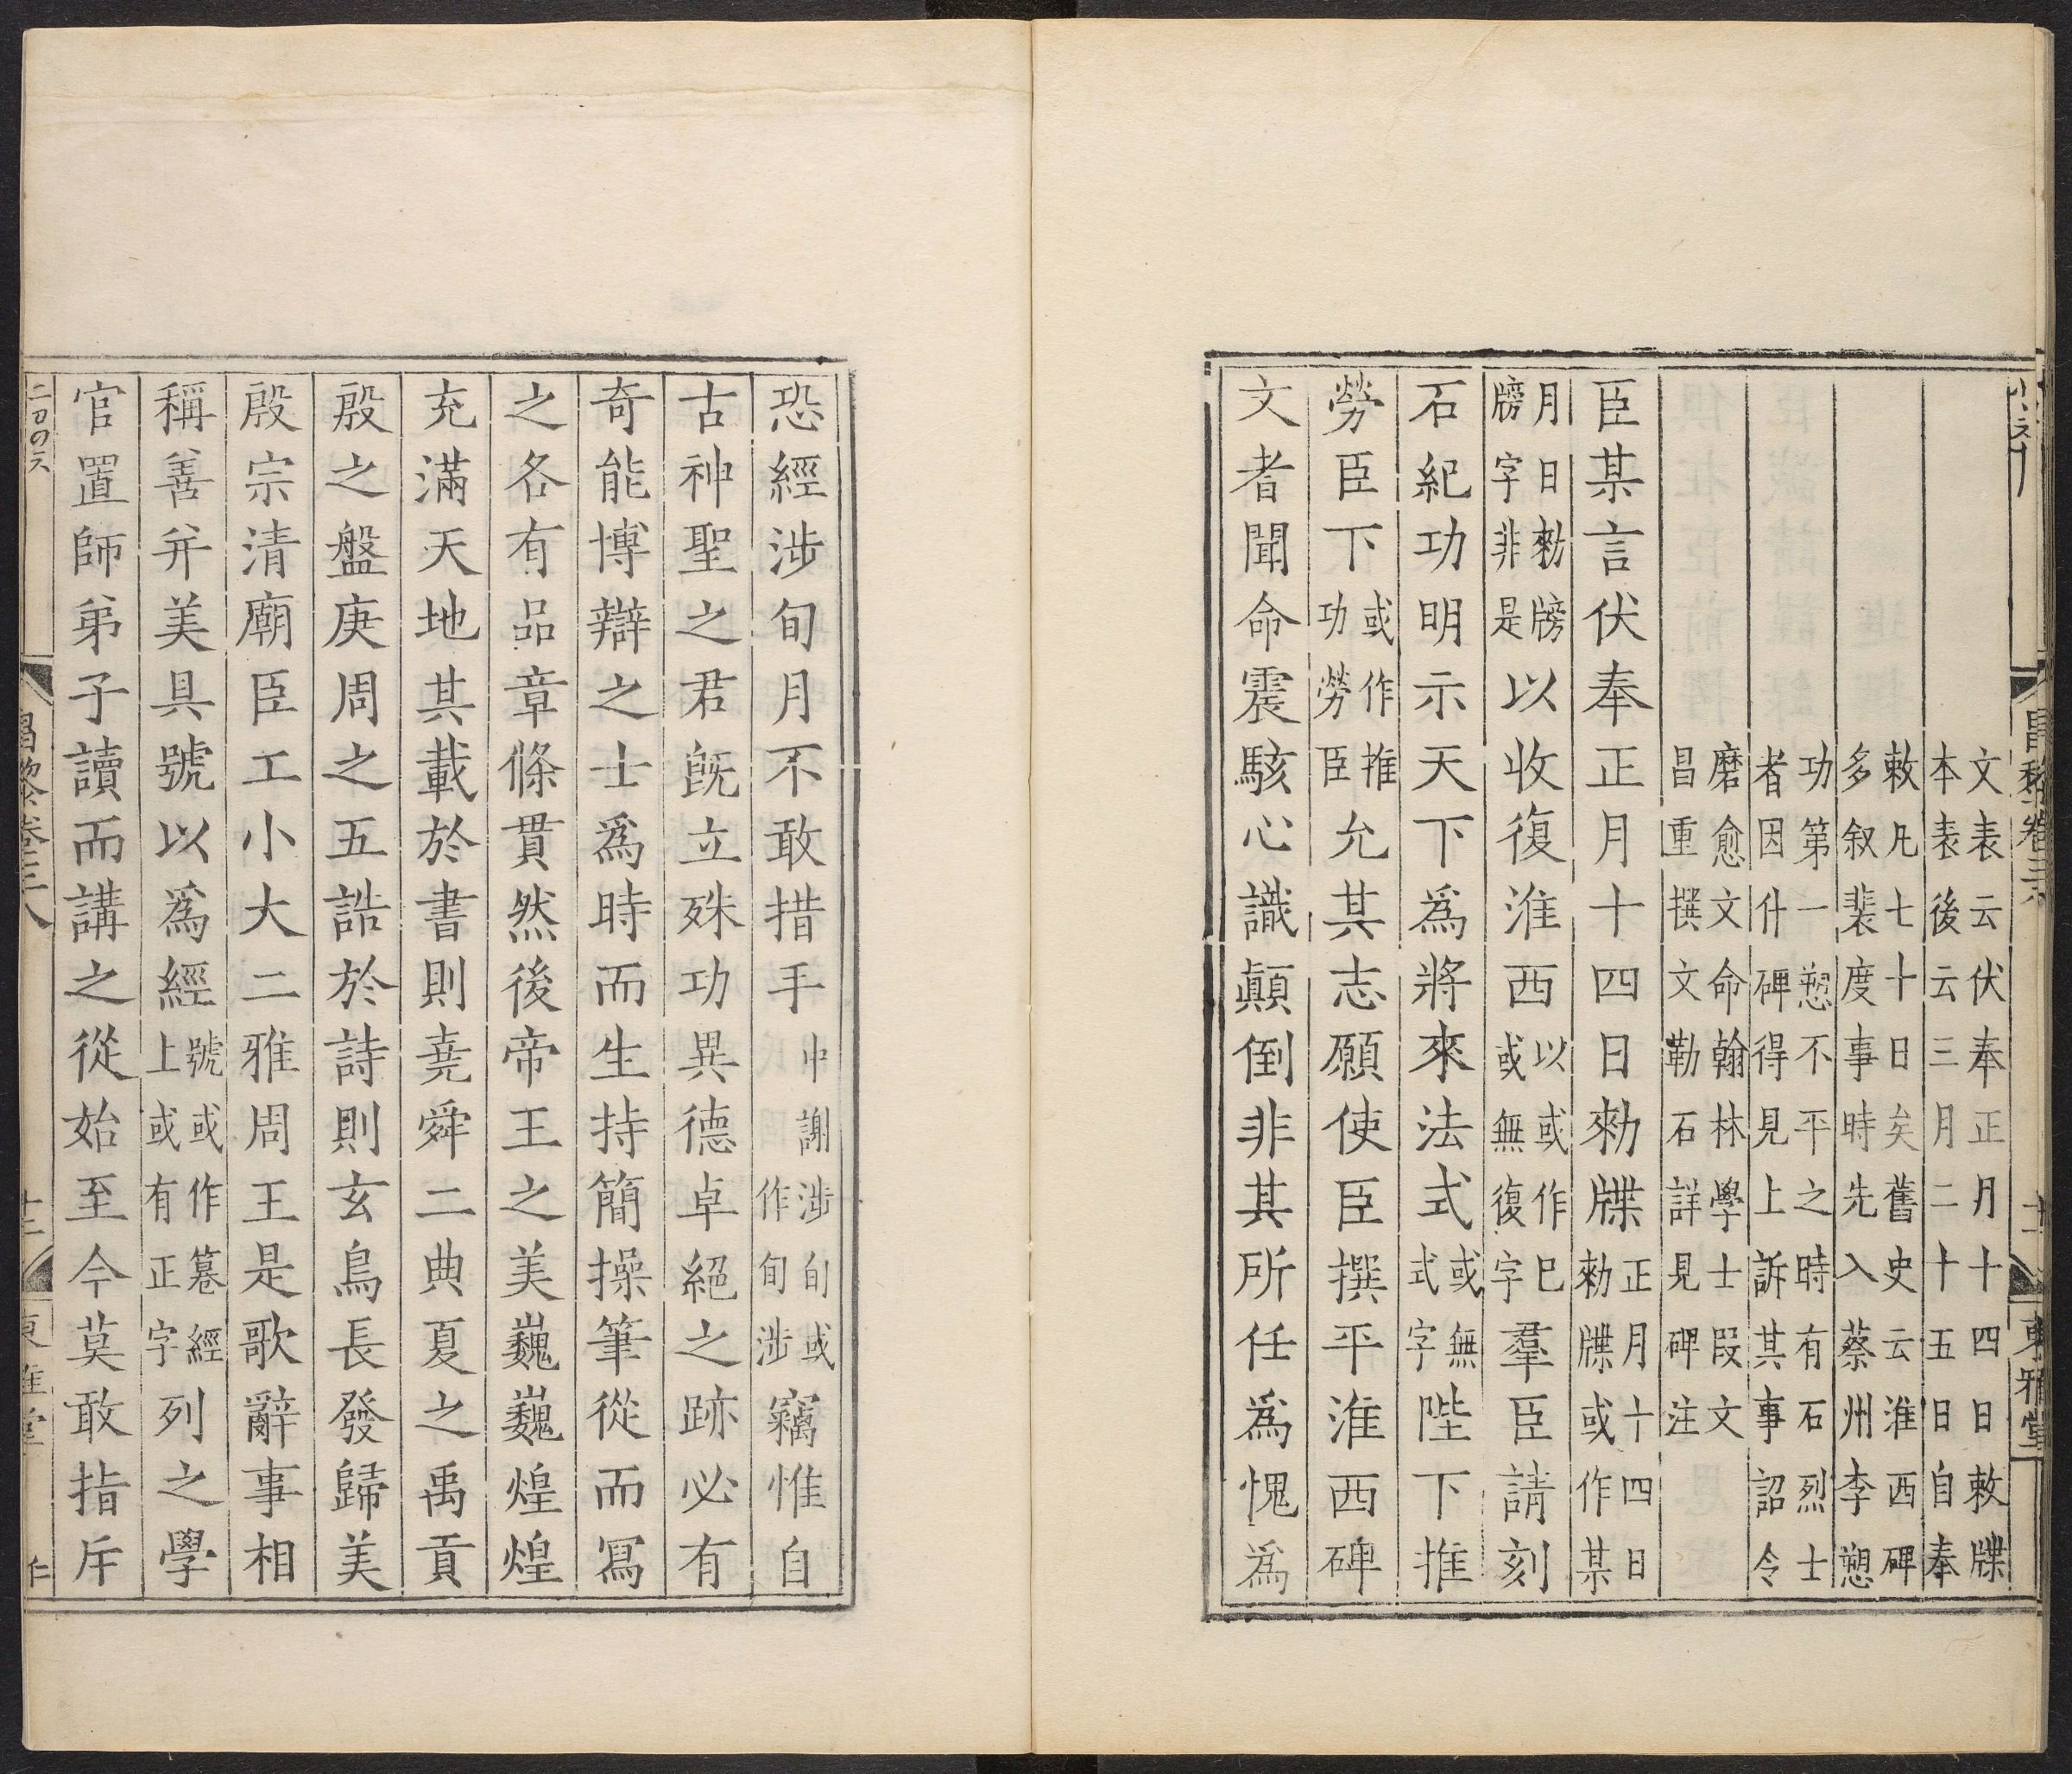 文表云伏奉正月十四日敕牒
本表後云三月二十五日自奉
敕凡七十日矣舊史云淮西碑
多叙裴度事時先入蔡州李愬
功第一愬不平之時有石烈士
者因什碑得見上訴其事詔令
磨愈文文命翰林學士段文
昌重撰文勒石詳見碑注
臣某言伏奉正月十四日勑牒正月十四日勑牒或作某
月日勑牓牓字非是以收復淮西以或作巳或無復字羣臣請刻
石紀功明示天下爲將來法式或無式字陛下推
勞臣下或作推功勞臣允其志願使臣撰平淮西碑
文者聞命震駭心識顛倒非其所任爲愧爲
恐經涉旬月不敢措手中謝涉旬或作旬涉竊惟自
古神聖之君旣立殊功異德卓絕之跡必有
奇能博辯之士爲時而生持簡操筆從而冩
之各有品章條貫然後帝王之美巍巍煌煌
充滿天地其載於書則堯舜二典夏之禹貢
殷之盤庚周之五誥於詩則玄鳥長發歸美
殷宗清廟臣工小大二雅周王是歌辭事相
稱善并美具號以爲經號或作篹經上或有正字列之學
官置師弟子讀而講之從始至今莫敢指斥
昌黎卷三八
十二
東雅堂
仁